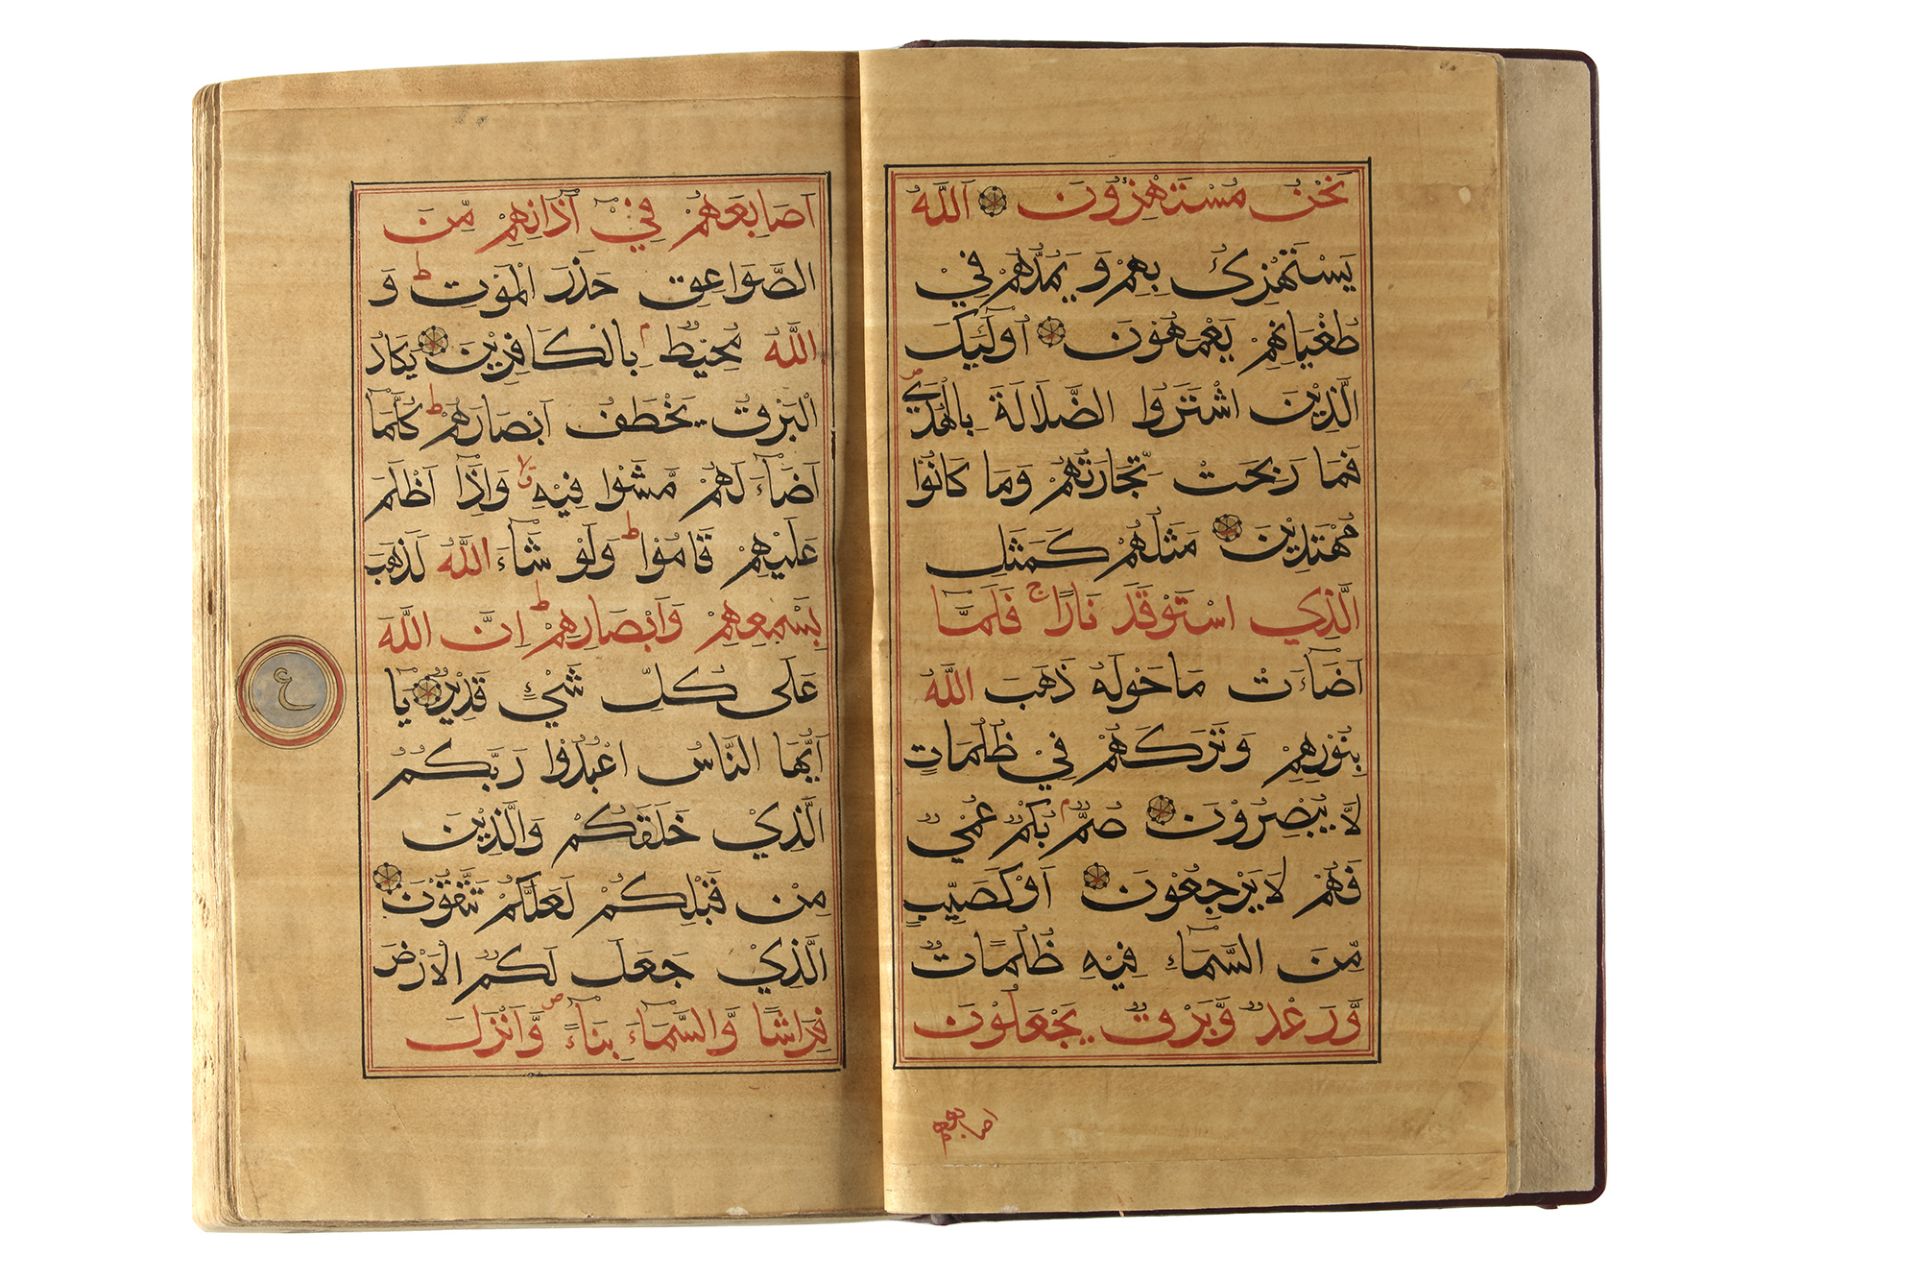 نَحْنُ مُسْتَهْزِؤُنَ اَللّٰهُ
يَسْتَهْزِئُ بِهِمْ وَ يَمُدُّهُمْ فِيْ
طُغْيَانِهِمْ يَعْمَهُوْنَ اُولٰٓئِكَ
الَّذِيْنَ اشْتَرَوُا الضَّلَالَةَ بِالْهُدٰى ص
فَمَا رَبِحَتْ تِّجَارَتُهُمْ وَمَا كَانُوْا
مُهْتَدِيْنَ مَثَلُهُمْ كَمَثَلِ
الَّذِي اسْتَوْقَدَ نَارًا ج فَلَمَّا
اَضَآءَتْ مَا حَوْلَهُ ذَهَبَ اللّٰهُ
بِنُوْرِهِمْ وَتَرَكَهُمْ فِيْ ظُلُمَاتٍ
لَّا يُبْصِرُوْنَ صُمٌّ م بُكْمٌ عُمْيٌ
فَهُمْ لَا يَرْجِعُوْنَ اَوْ كَصَيِّبٍ
مِّنَ السَّمَآءِ فِيْهِ ظُلُمَاتٌ
وَّرَعْدٌ وَّبَرْقٌ يَجْعَلُوْنَ
اصابعهم
اَصَابِعَهُمْ فِيْ اٰذَانِهِمْ مِّنَ
الصَّوَاعِقِ حَذَرَ الْمَوْتِ ط وَ
اللّٰهُ مُحِيْطٌ م بِالْكَافِرِيْنَ يَكَادُ
الْبَرْقُ يَخْطَفُ اَبْصَارَهُمْ ط كُلَّمَآ
اَضَآءَ لَهُمْ مَّشَوْا فِيْهِ قلا وَاِذَآ اَظْلَمَ
عَلَيْهِمْ قَامُوْا ط وَلَوْ شَآءَ اللّٰهُ لَذَهَبَ
بِسَمْعِهِمْ وَاَبْصَارِهِمْ ط اِنَّ اللّٰهَ
عَلٰى كُلِّ شَيْءٍ قَدِيْرٌ يَآ
اَيُّهَا النَّاسُ اعْبُدُوْا رَبَّكُمُ
الَّذِيْ خَلَقَكُمْ وَالَّذِيْنَ
مِنْ قَبْلِكُمْ لَعَلَّكُمْ تَتَّقُوْنَ
الَّذِيْ جَعَلَ لَكُمُ الْاَرْضَ
فِرَاشًا وَّالسَّمَآءَ بِنَآءً ص وَّاَنْزَلَ
ع